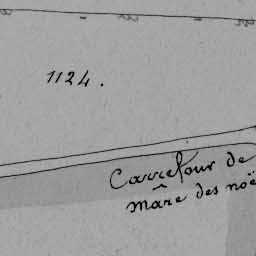 1124.
Carrefour de
mâre des noë